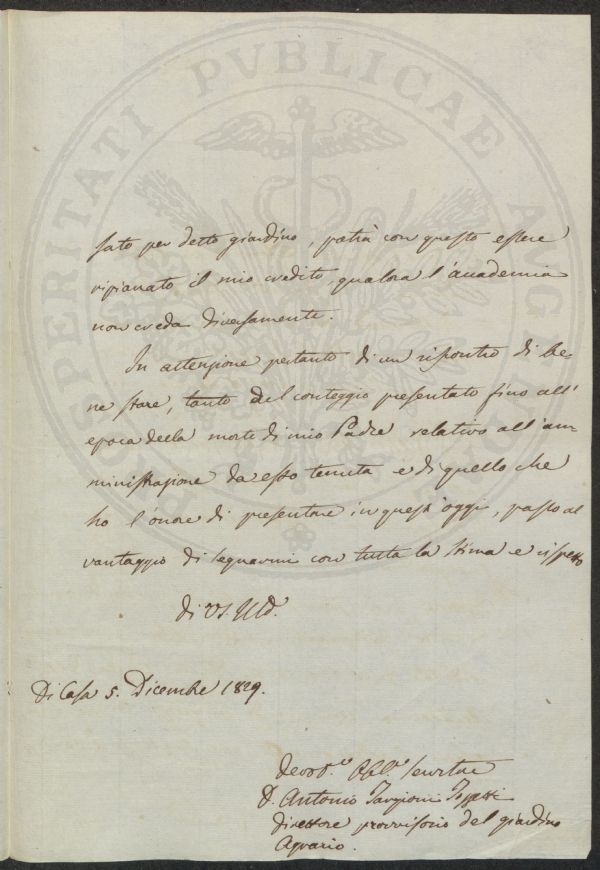 PROSPERITATI PVBLICAE AVGENDAE
sato per detto giardino, potrà con questo essere
ripianato il mio credito, qualora l'accademia
non creda diversamente.
In attenzione pertanto di un riscontro di be-
ne stare, tanto del conteggio presentato fino all'
epoca della morte di mio Padre relativo all'am-
ministrazione da esso tenuta e di quello che
ho l'onore di presentare in quest'oggi, passo al
vantaggio di segnarmi con tutta la stima e rispetto
di VS. Illᵃ.
Di Casa 5. Dicembre 1829.
devot.º Obb.º servitore
D. Antonio Targioni Tozzetti
direttore provvisorio del giardino
Agrario.